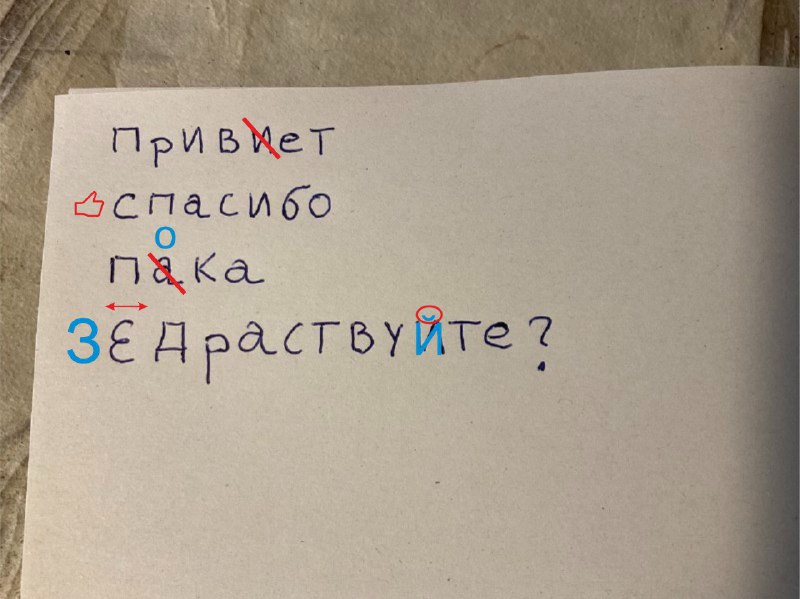 привиет
спасибо
о
пака
З Ɛдраствуйте?